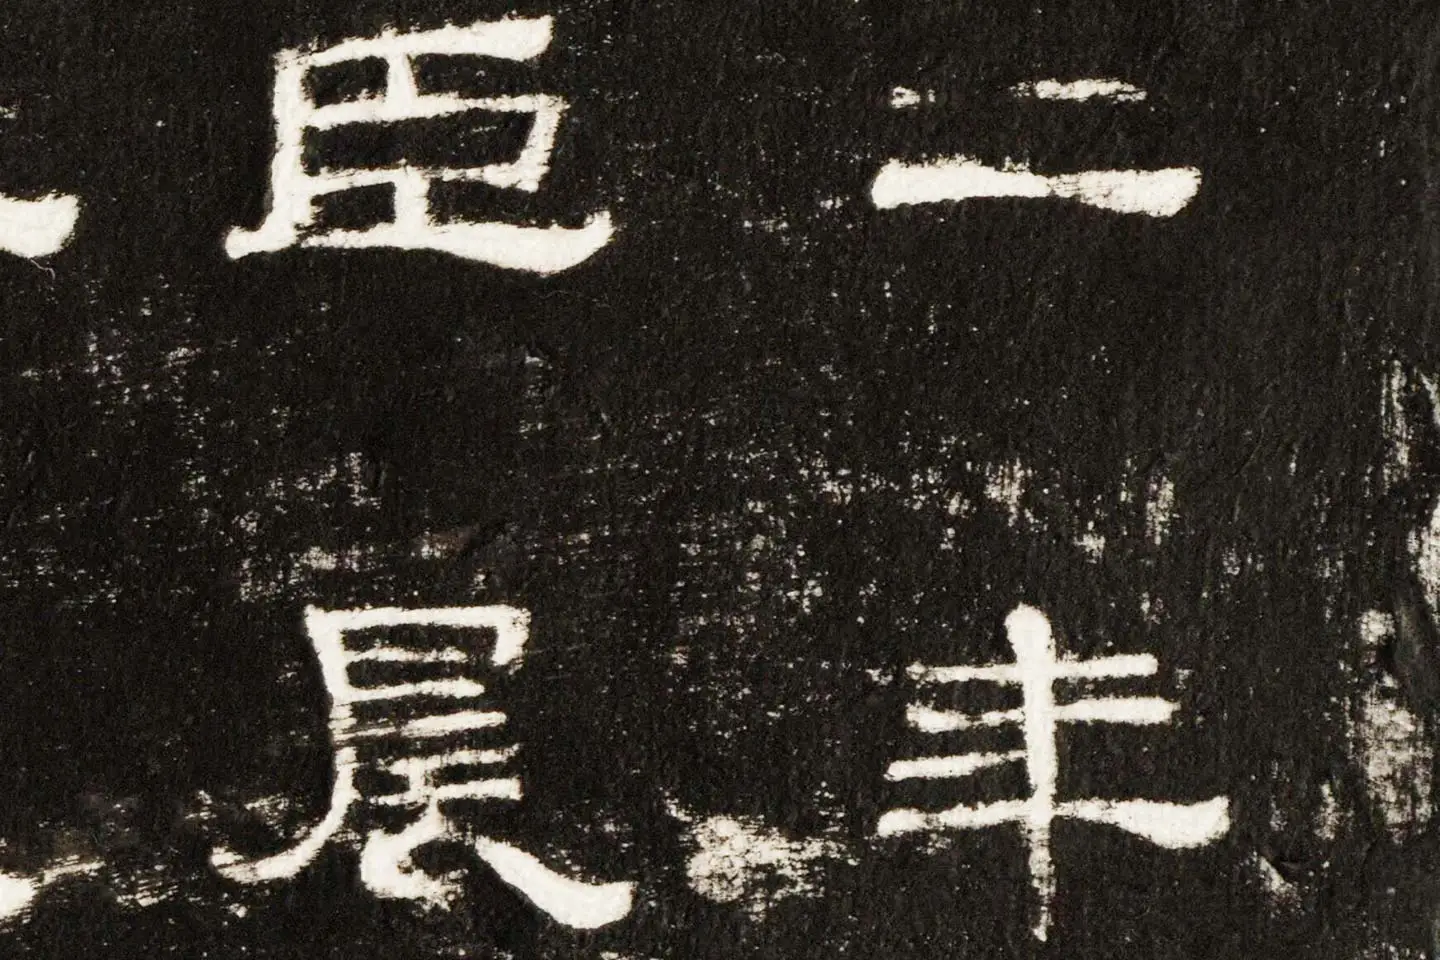 二年
臣晨